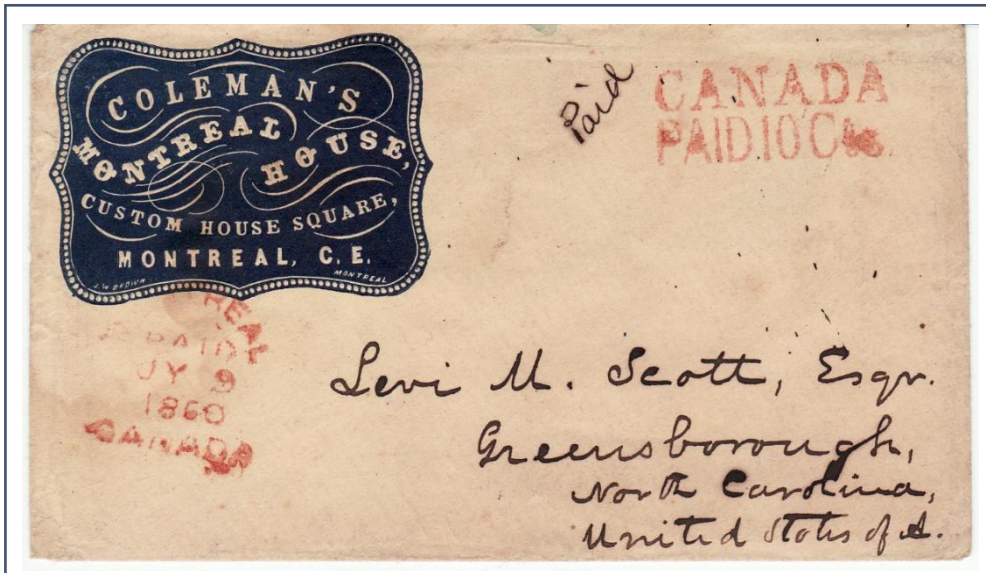 COLEMAN'S
MONTREAL
HOUSE,
CUSTOM HOUSE SQUARE,
MONTREAL, C.E.
J. W. BROWN MONTREAL
Paid
CANADA
PAID 10 Cts.
REAL
PAID
JY 9
1860
CANADA
Levi M. Scott, Esqr.
Greensborough,
North Carolina,
United States of A.